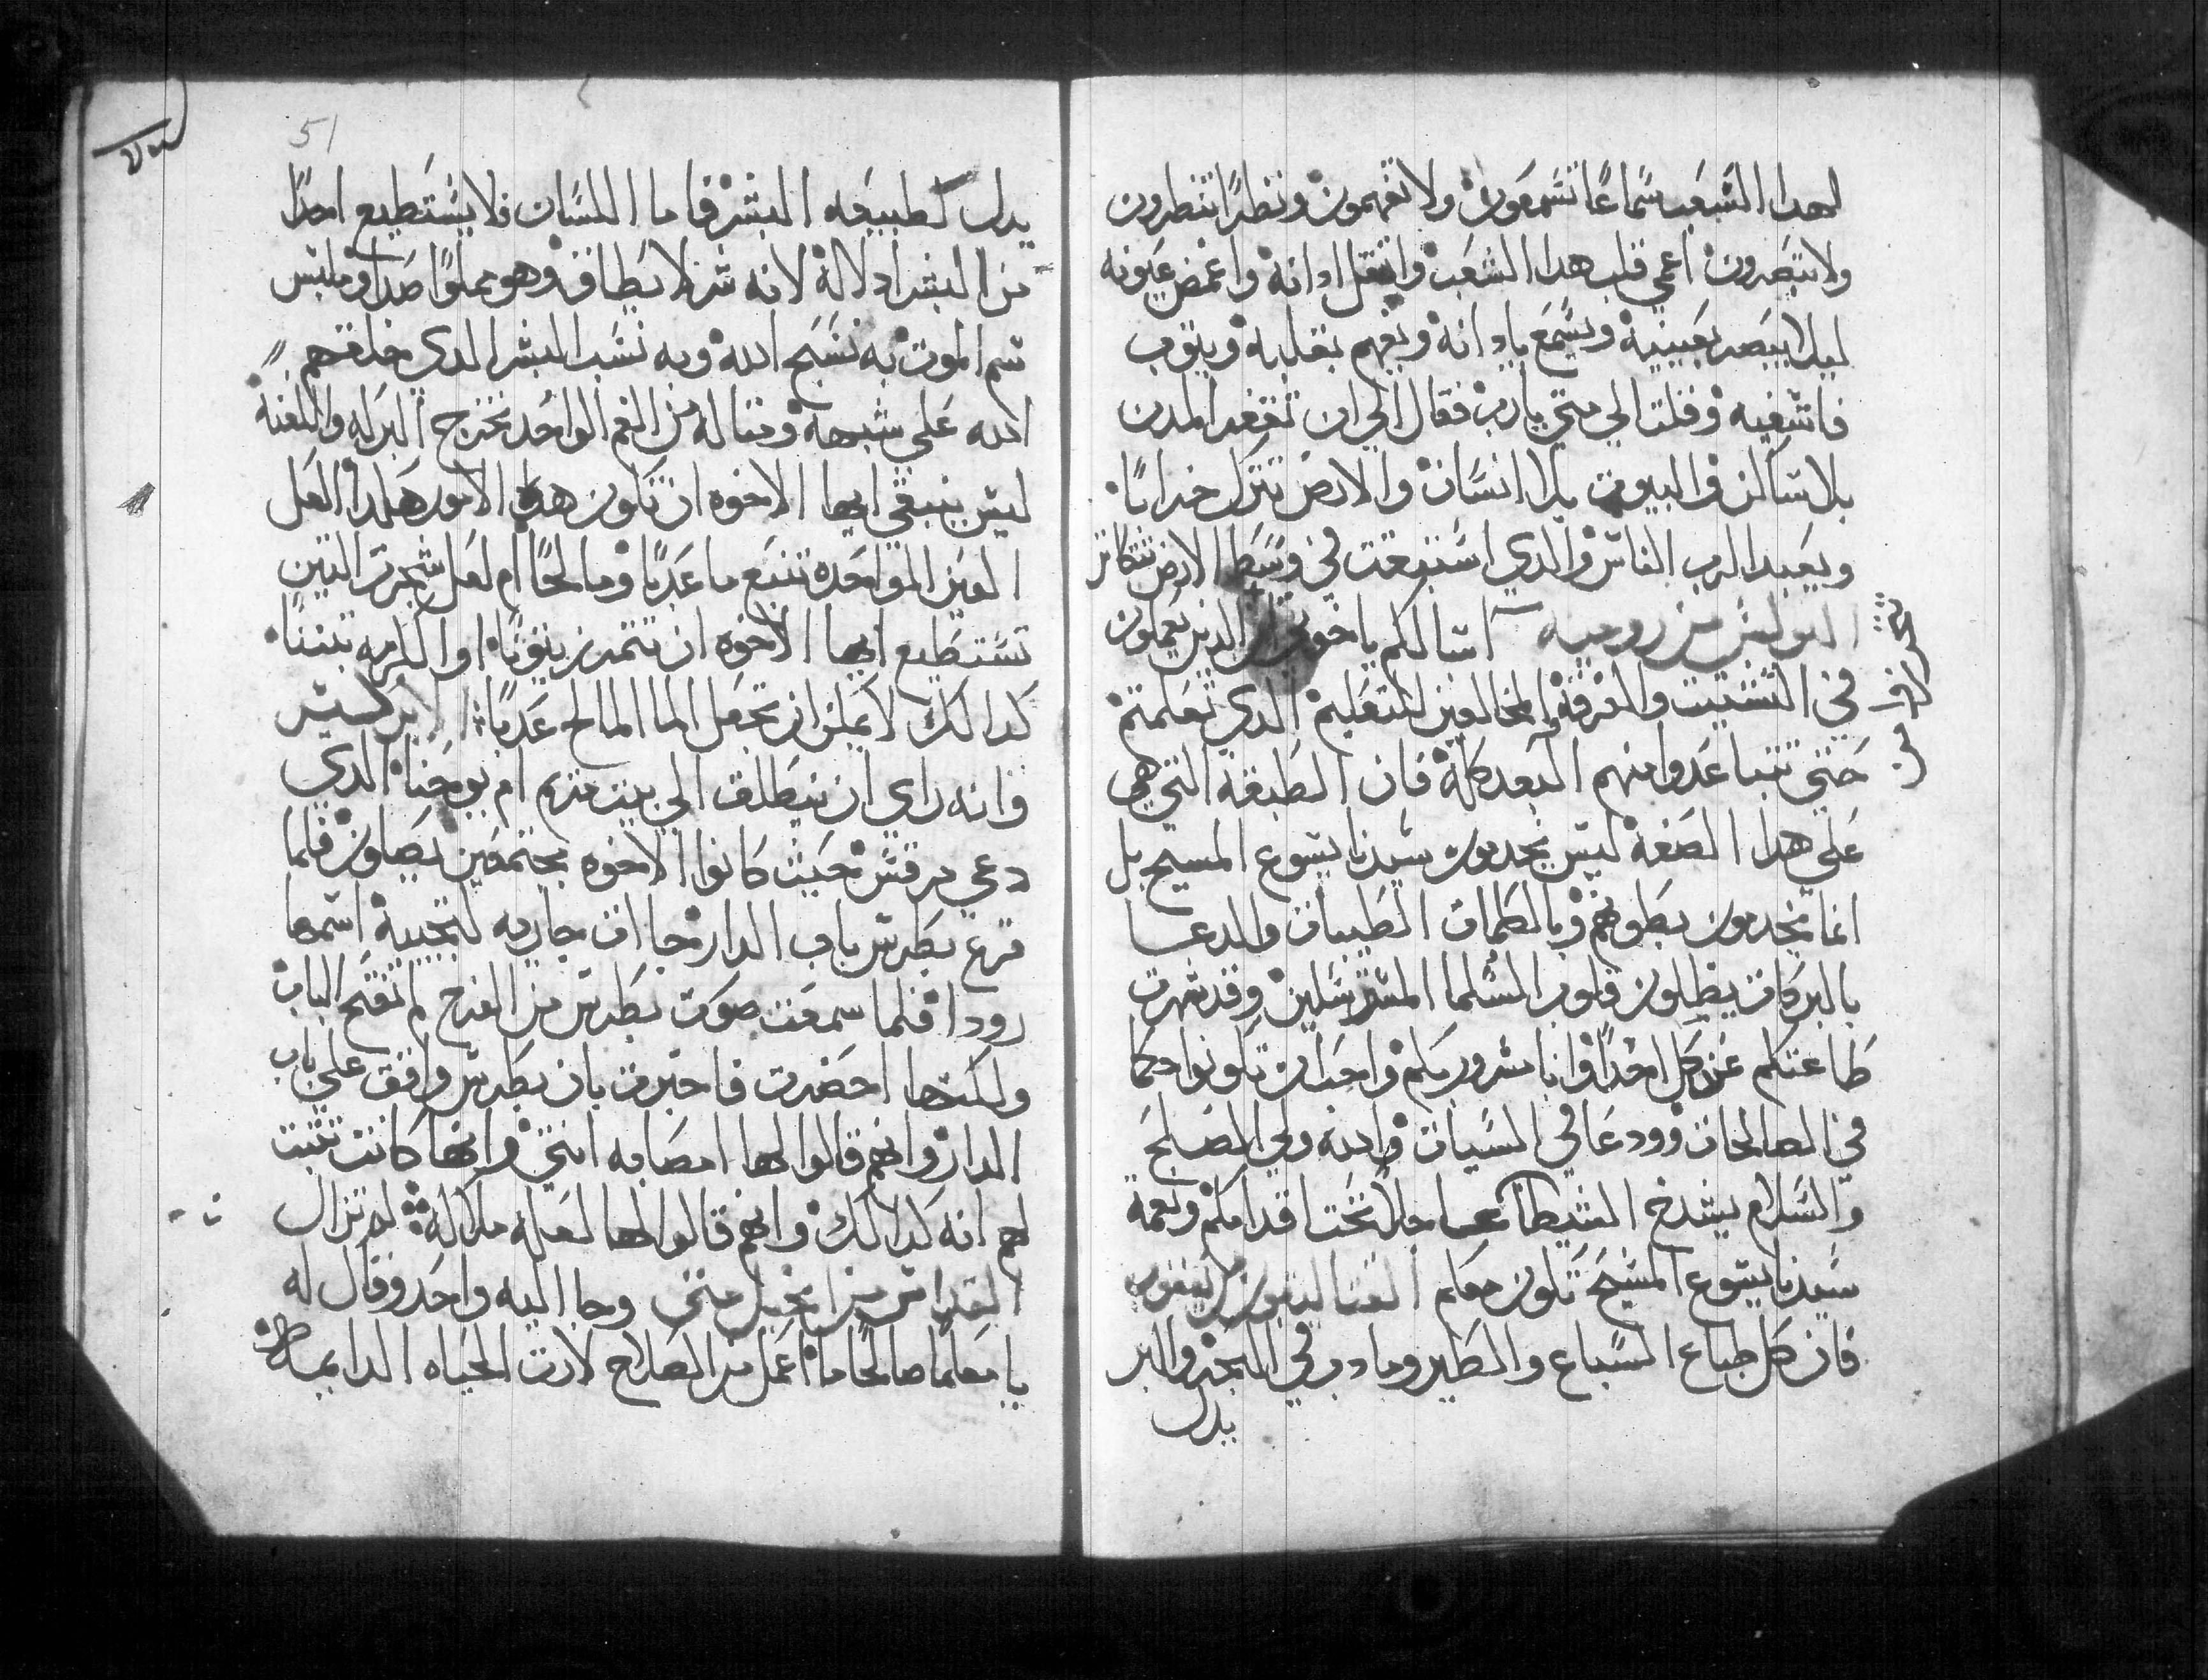 لهدا الشعب سماعا تسمعون ولا تفهمون ونظرا تنظرون
ولا تبصرون اعمي قلب هدا الشعب واتقل ادانه واغمض عيونه
ليلا يبصر بعينيه ويسمع بادانه ويفهم بقلبه ويتوب
فاشفيه وقلت الي متي يارب فقال الي ان تقفر المدن
بلا ساكن والبيوت بلا انسان والارض تترك خرابا
ويبعد الرب الناس والدي استبقت في وسط الارض تتكاتر
البولس من روميه اسالكم ياخوتي ان الدين يعملون
في التشتيت والفرقة المخالفين للتعليم الدي تعلمتم
حتي تتباعدوا منهم البعد كله فان الطبقة التي هي
علي هدا الصفة ليس يخدمون سيدنا يسوع المسيح بل
انما يخدمون بطونهم وبالكلمات الطيبات والدعا
بالبركات يظلون قلوب السلما المسترسلين وقد شهرت
طاعتكم عند كل احدا وانا مسرور بكم واحب ان تكونوا حكما
في الصالحات وودعا في السيات والله ولي الصلح
والسلام يشدخ الشيطان عاجلا تحت اقدامكم ونعمة
سيدنا يسوع المسيح تكون معكم القتاليقون من يعقوب
فان كل طباع السباع والطير وما دب في البحر والبر
يدل
51
يدل لطبيعه البشر فاما اللسان فلا يستطيع احدا
من البشر ادلاله لانه شر لا يطاق وهو مملوا صدا وملبس
سم الموت به نسبح الله وبه نسب البشر الدي خلقهم
الله علي شبهه ومتاله من الفم الواحد تخرج البركه واللعنة
ليس ينبغي ايها الاخوه ان تكون هده الامور هكدا العل
العين الواحده تنبع ما عدبا وما مالحا ام لعل شجرت التين
تستطيع ايها الاخوه ان تتمر زيتونا او الكرمه تينا
كدالك لا يمكن ان تجعل الما المالح عدبا الابركسيس
وانه راي ان ينطلق الي بيت مريم ام يوحنا الدي
دعي مرقس حيت كانوا الاخوه مجتمعين يصلون فلما
قرع بطرس باب الدار جاات جاريه لتجيبه اسمها
رودا فلما سمعت صوت بطرس من الفرح لم تفتح الباب
ولكنها احضرت فاخبرت بان بطرس واقف علي باب
الدار وانهم قالوا لها امصابه انتي وانها كانت تتبت
لهم انه كدالك وانهم قالوا لها لعله ملاكه لم تزال
القداس من انجيل متي وجا اليه واحد وقال له
يا معلما صالحا ما اعمل من الصلاح لارت الحياه الدايمه